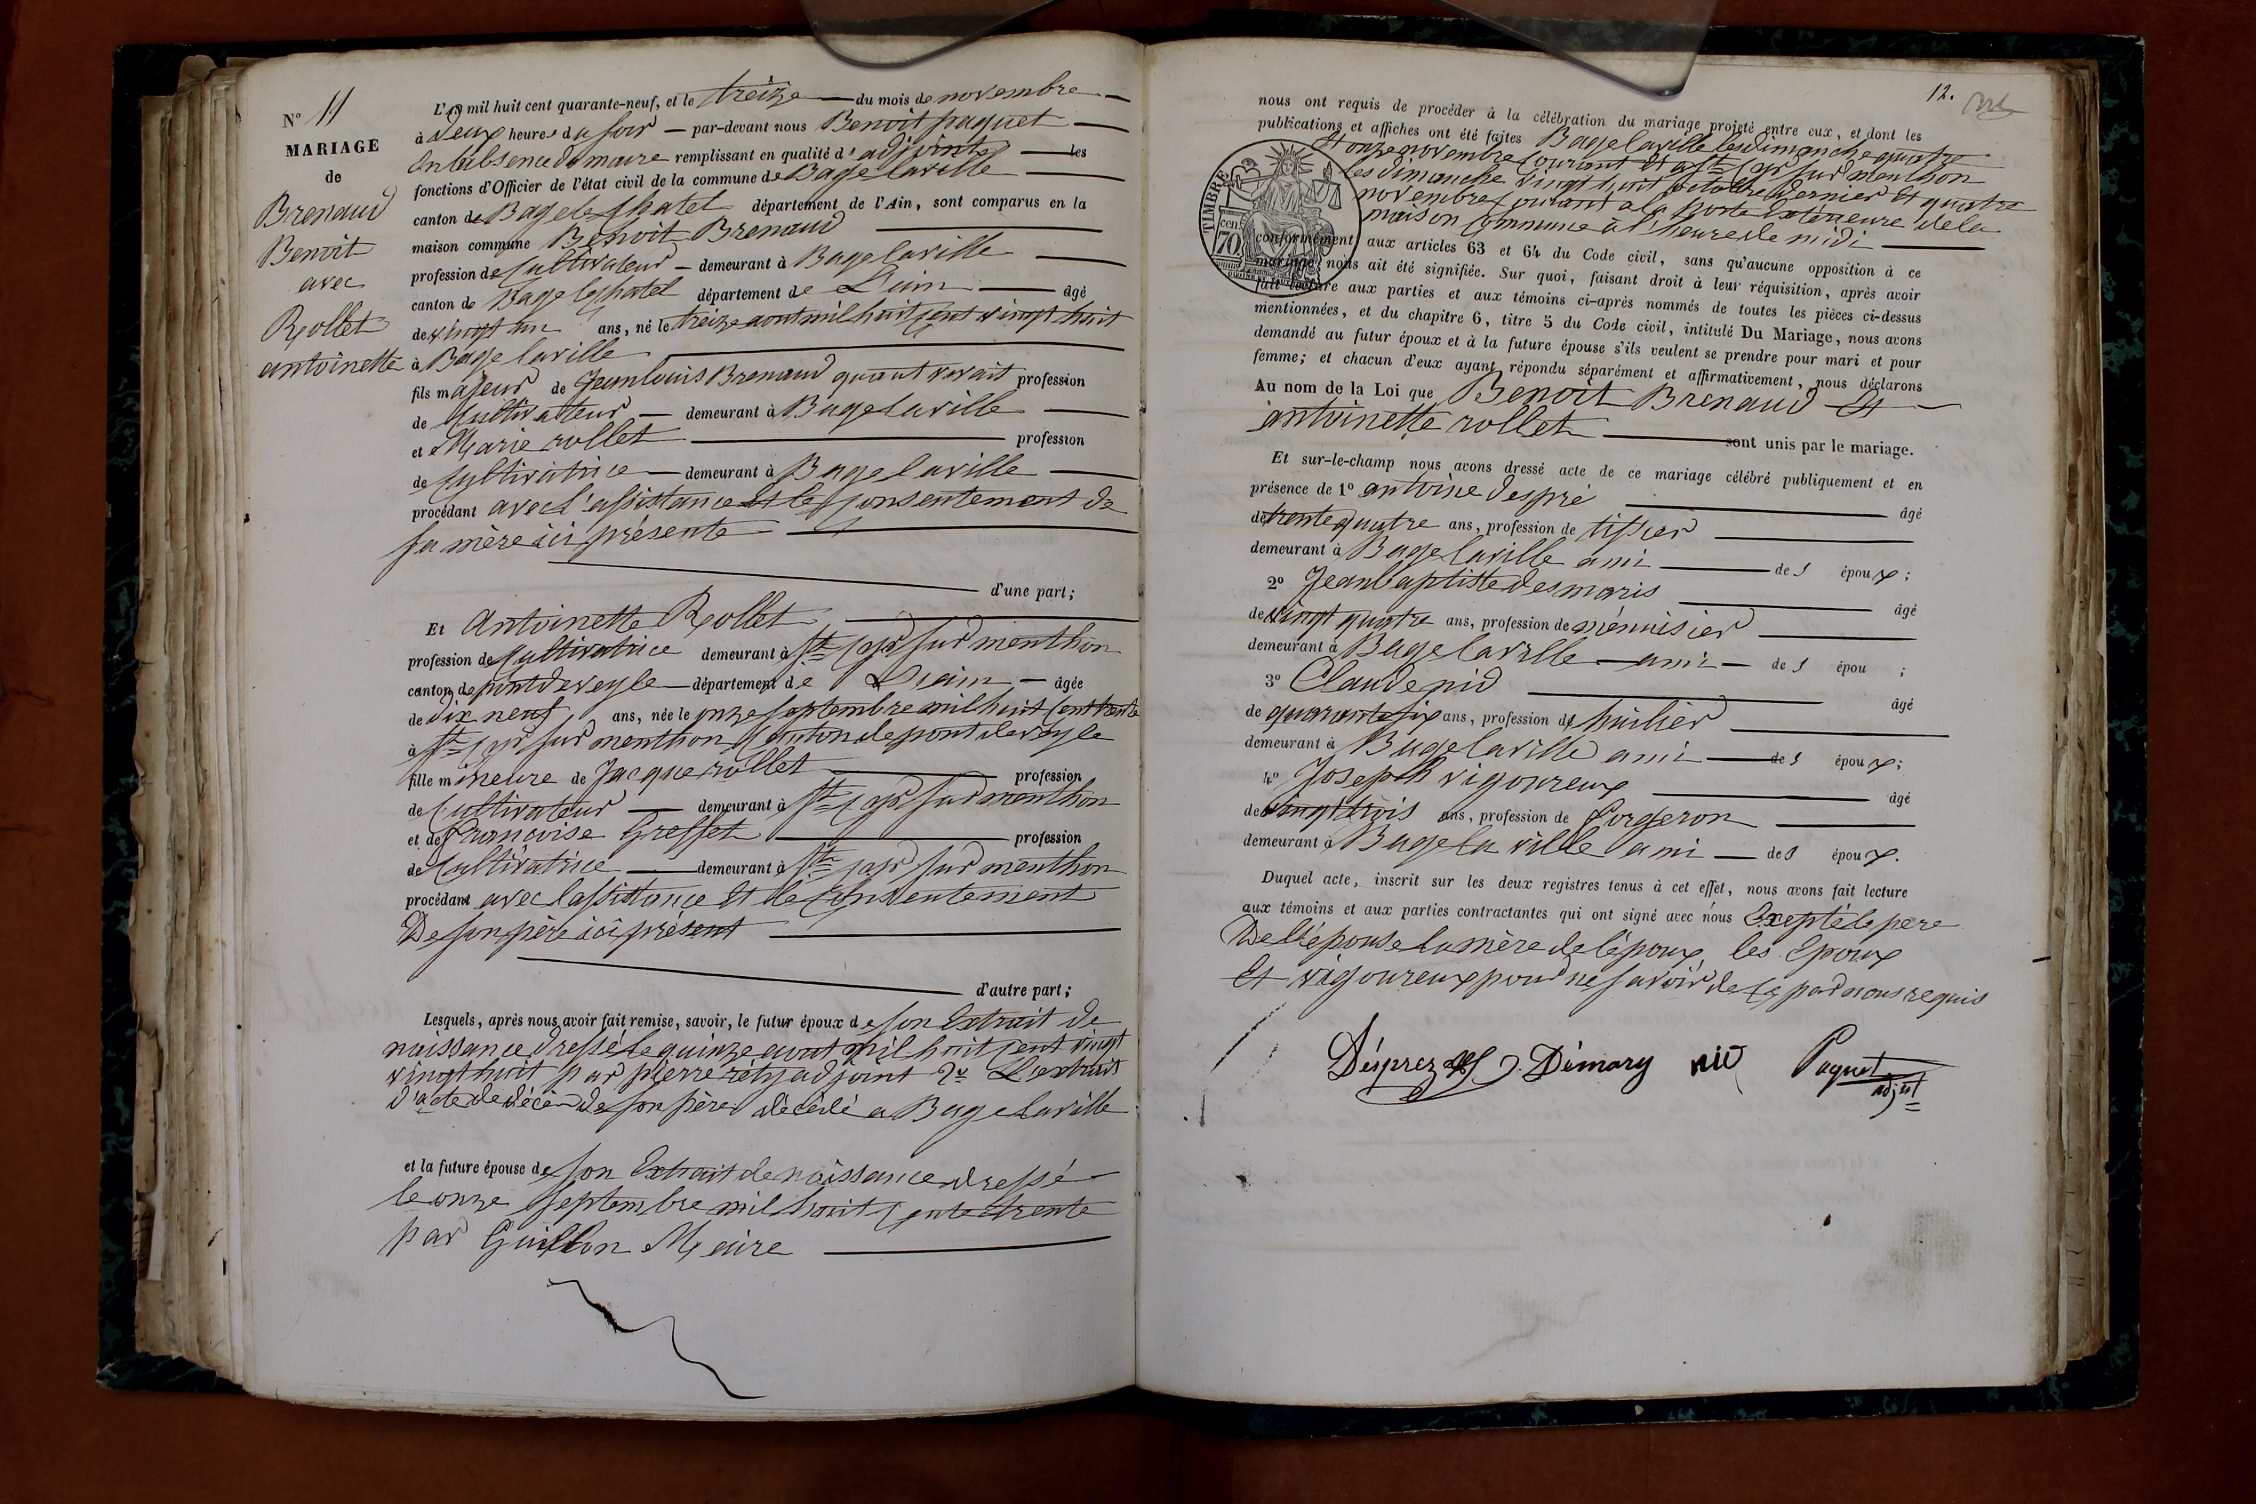 N° 11
MARIAGE
de
Brenaud
Benoit
avec
Rollet
antoinette
L'an mil huit cent quarante-neuf, et le treize du mois de novembre
à deux heures du soir par-devant nous Benoit paquet
en labsence du maire remplissant en qualité d'adjoint les
fonctions d'Officier de l'état civil de la commune de Bagelaville
canton de Bagelechatel département de l'Ain, sont comparus en la
maison commune Benoit Brenaud
profession de Cultivateur demeurant à Bagelaville
canton de Bagelechatel département de L'ain âgé
de vingt un ans, né le treize aout mil huit Cent vingt huit
à Bagelaville
fils majeur de Jeanlouis Brenaud quant vivait profession
de Cultivateur demeurant à Bagelaville
et Marie rollet profession
de Cultivatrice demeurant à Bagelaville
procédant avec l'assistance et le Consentement de
sa mère ici présente
d'une part;
Et Antoinette Rollet
profession de Cultivatrice demeurant à St Cyr sur menthon
canton de pontdeveyle département de L'ain âgée
de dix neuf ans, née le onze septembre mil huit Cent trente
à St Cyr sur menthon Canton de pont de veyle
fille mineure de Jacque rollet profession
de Cultivateur demeurant à St Cyr sur menthon
et de francoise Greffet profession
de Cultivatrice demeurant à St Cyr sur menthon
procédant avec lassistance et le Consentement
De son père ici présent
d'autre part;
Lesquels, après nous avoir fait remise, savoir, le futur époux de son Extrait de
naissance dressé le quinze aout mil huit Cent vingt
vingt huit par pierre réty adjoint 2° L'extrait
d'acte de décè de son père décédé a Bagelaville
et la future épouse de son Extrait de naissance dressé
le onze septembre mil huit Cent trente
par Guillon Maire
12.
nous ont requis de procéder à la célébration du mariage projeté entre eux, et dont les
publications et affiches ont été faites Bagelaville les dimanche quatre
et onze novembre Courant et a St Cyr sur menthon
les dimanche vingt huit octobre dernier Et quatre
novembre Courant a la porte Extérieure de la
maison Commune à l'heure de midi
TIMBRE
70 cent
conformément aux articles 63 et 64 du Code civil, sans qu'aucune opposition à ce
mariage nous ait été signifiée. Sur quoi, faisant droit à leur réquisition, après avoir
fait lecture aux parties et aux témoins ci-après nommés de toutes les pièces ci-dessus
mentionnées, et du chapitre 6, titre 5 du Code civil, intitulé Du Mariage, nous avons
demandé au futur époux et à la future épouse s'ils veulent se prendre pour mari et pour
femme; et chacun d'eux ayant répondu séparément et affirmativement, nous déclarons
Au nom de la Loi que Benoit Brenaud Et
antoinette rollet sont unis par le mariage.
Et sur-le-champ nous avons dressé acte de ce mariage célébré publiquement et en
présence de 1° antoine despré âgé
de trente quatre ans, profession de tissier
demeurant à Bagelaville ami des époux;
2° Jeanbaptiste desmaris âgé
de vingt quatre ans, profession de ménuisier
demeurant à Bagelaville ami des épou ;
3° Claude nid âgé
de quarante six ans, profession d'huilier
demeurant à Bagelaville ami des époux;
4° Joseph vigoureux âgé
de vingt trois ans, profession de forgeron
demeurant à Bagelaville ami des époux.
Duquel acte, inscrit sur les deux registres tenus à cet effet, nous avons fait lecture
aux témoins et aux parties contractantes qui ont signé avec nous Excepté le père
De l'épouse la mère de l'époux les Epoux
Et vigoureux pour ne savoir de Ce par nous requis
Désprez J. Démary nid Paquet
adjnt